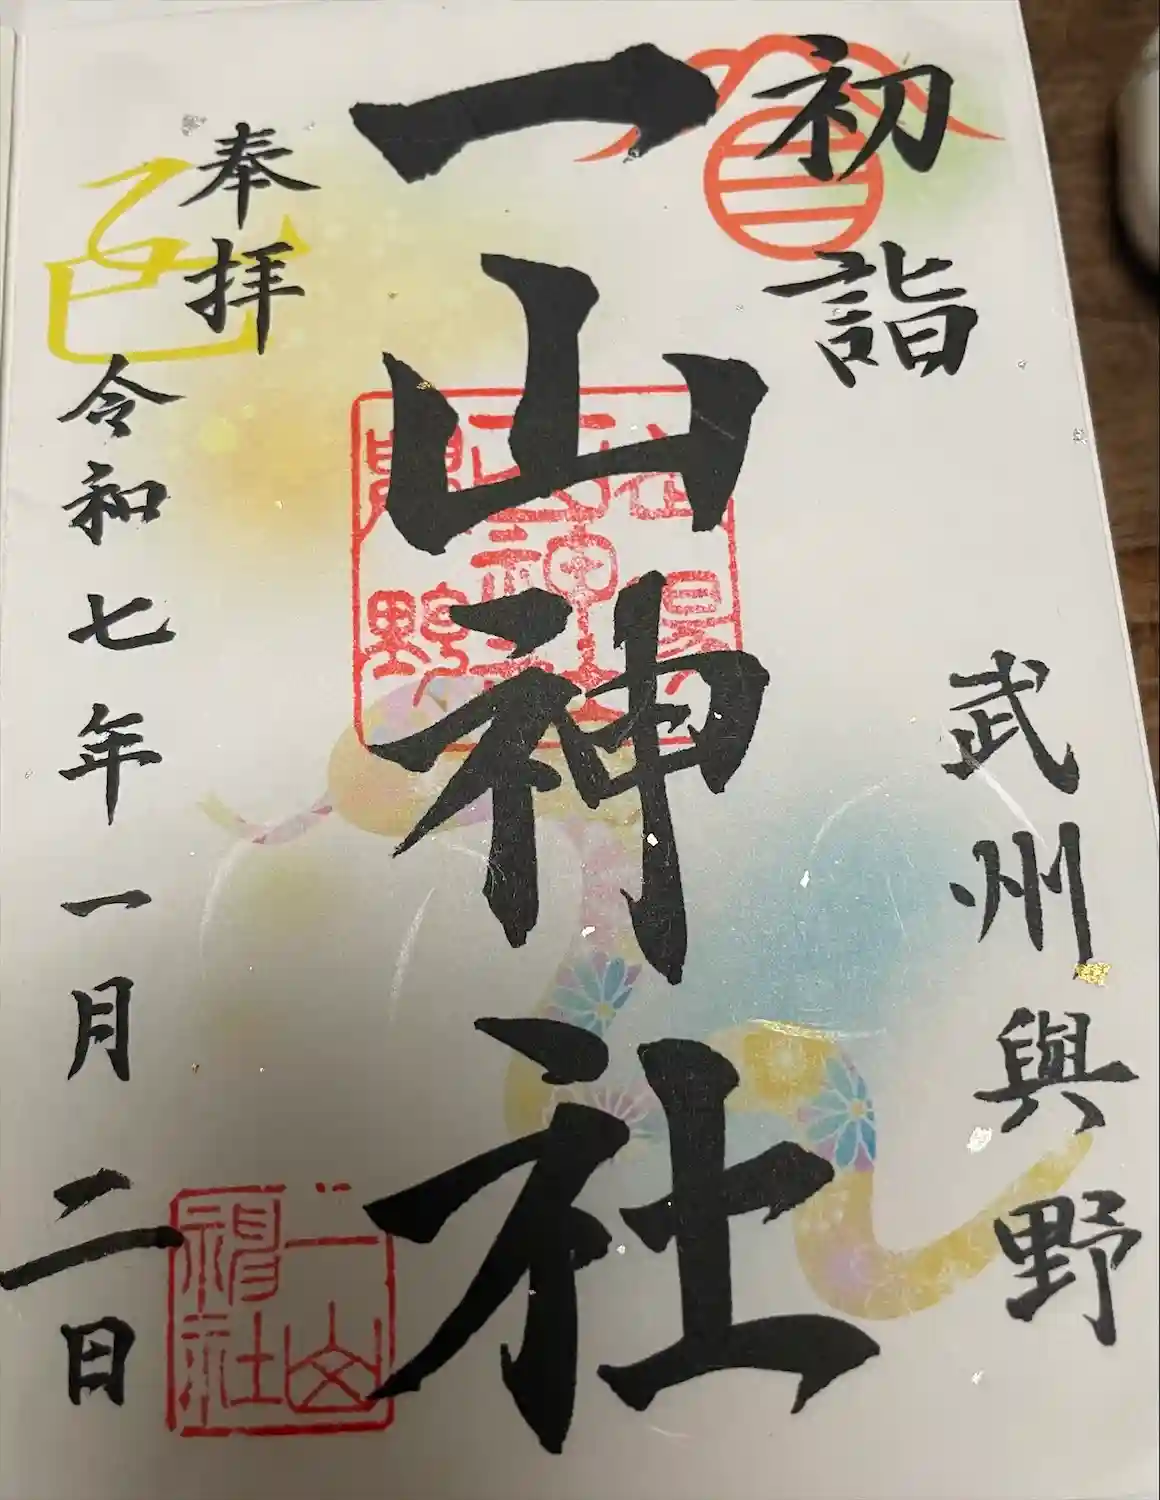 初詣
武州與野
一山神社
奉拝
令和七年一月二日
乙巳
一山
神社